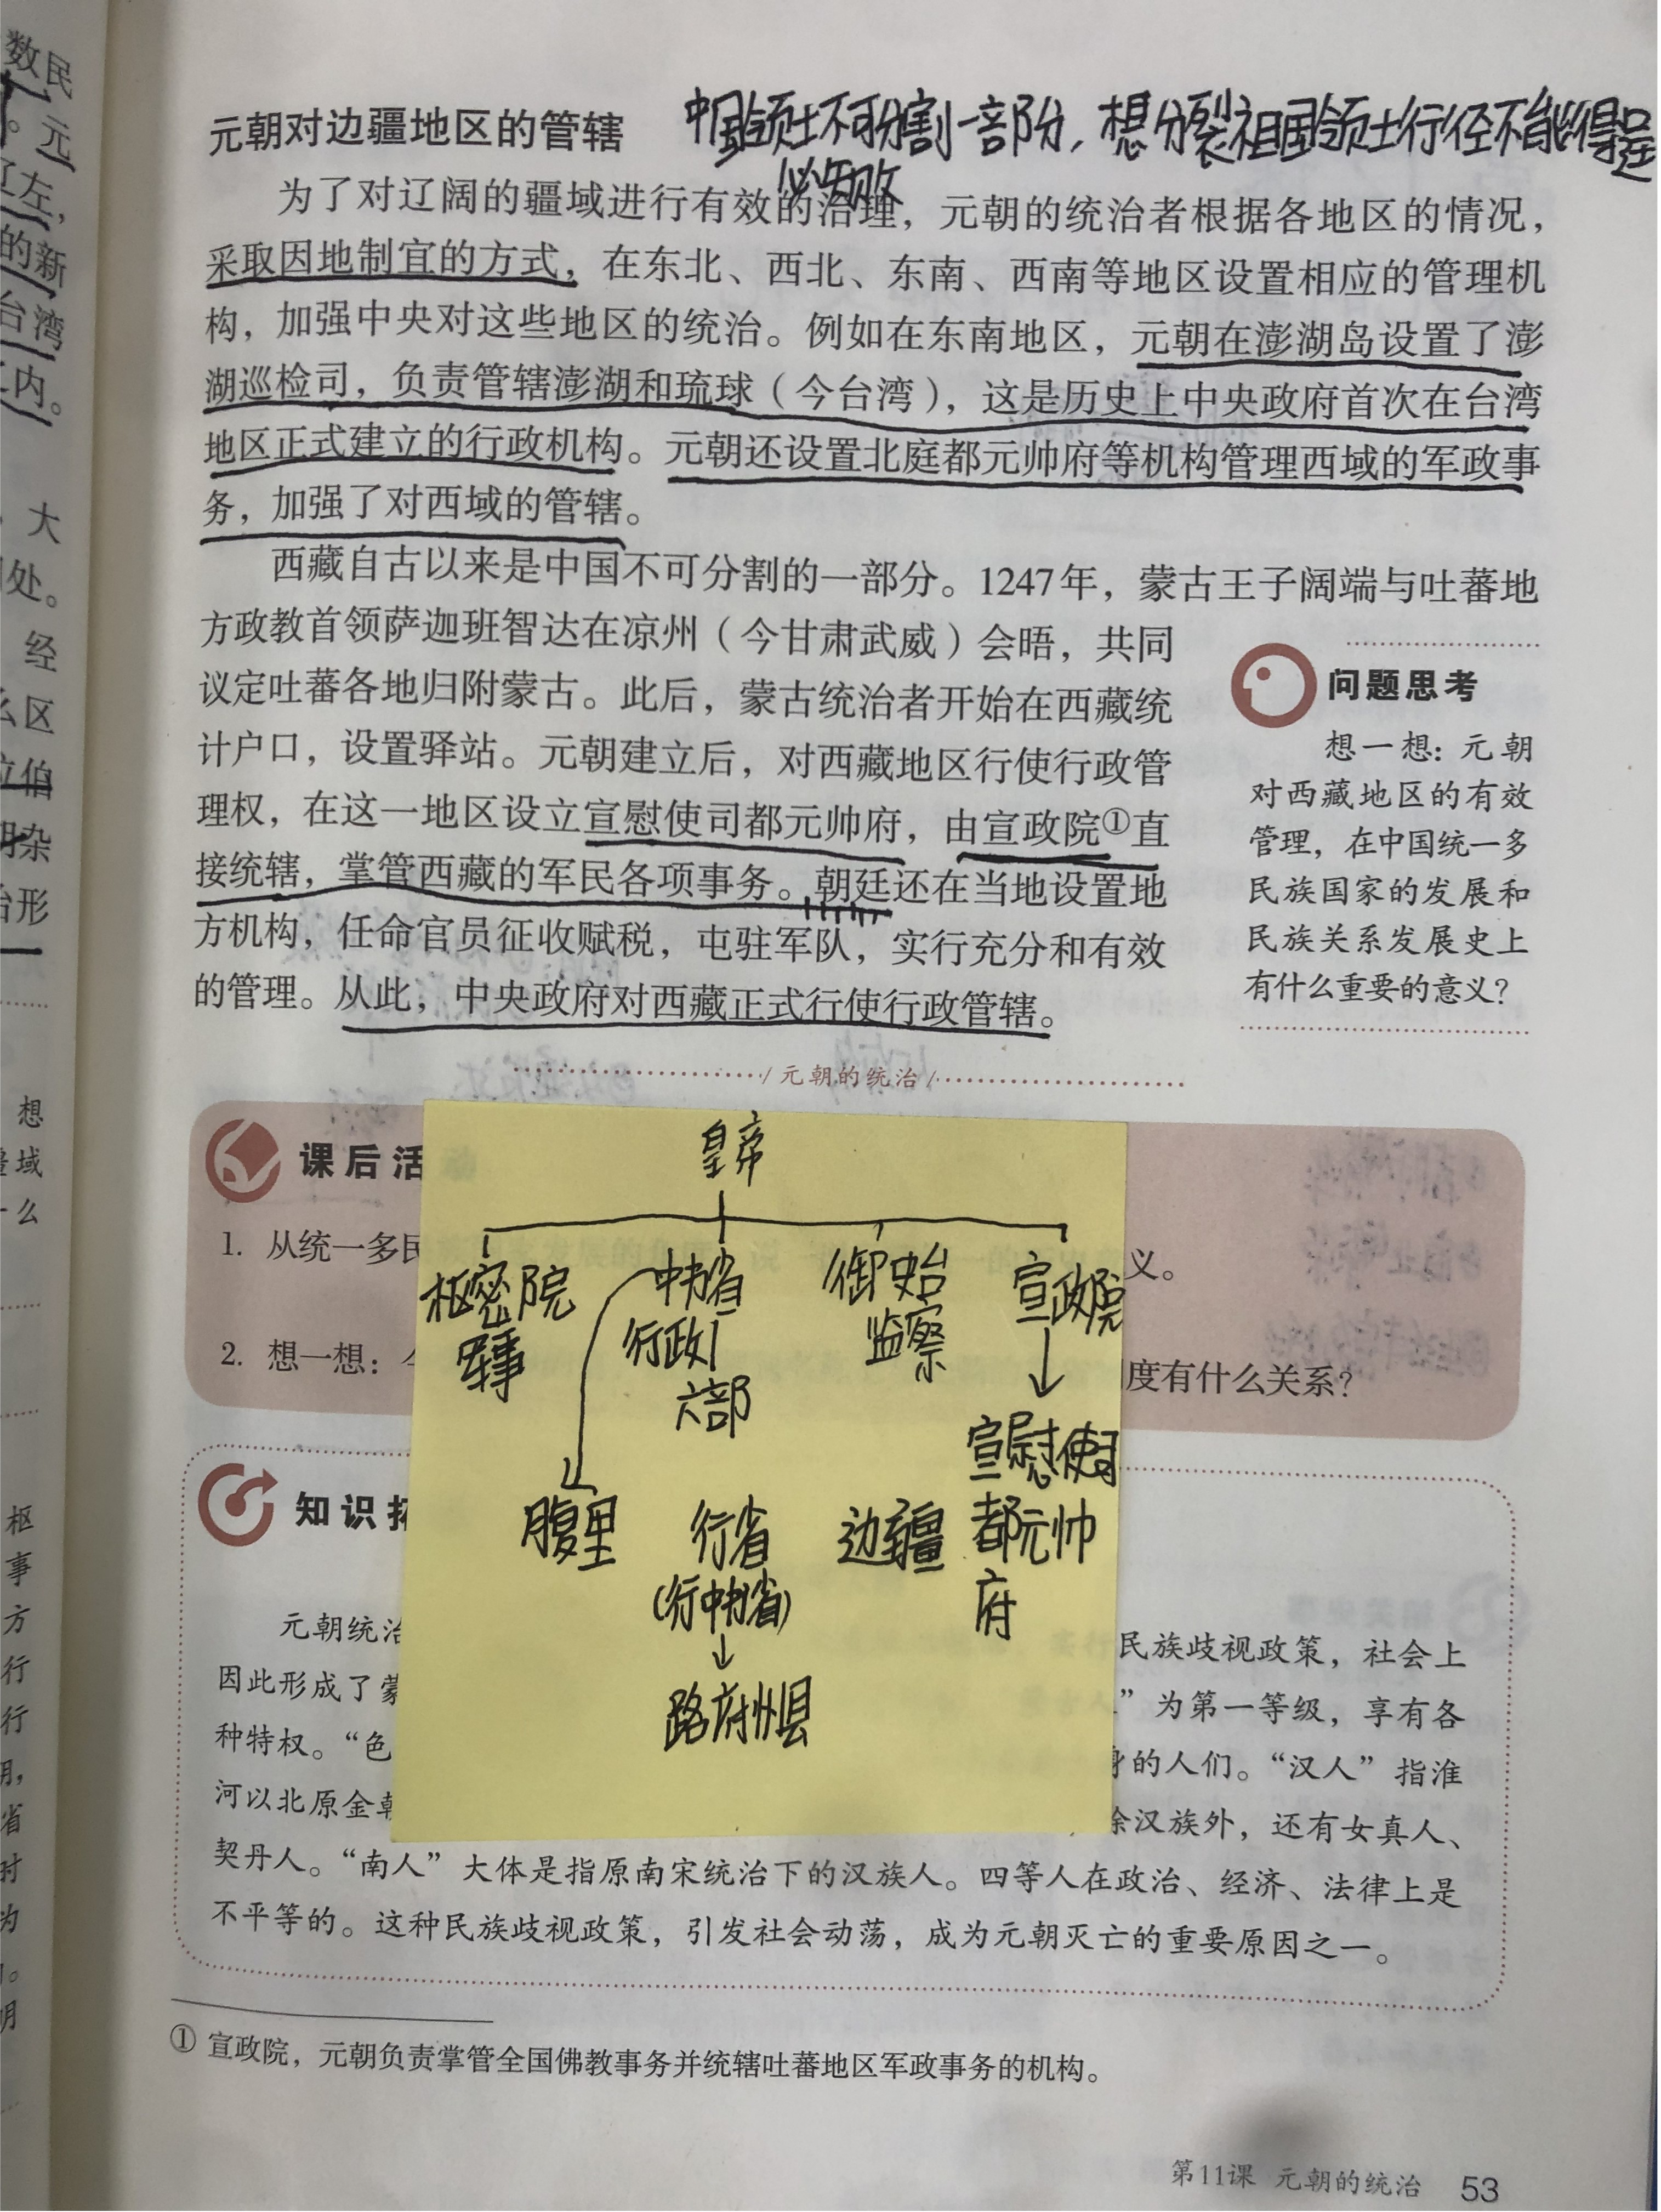 数民
。元
辽左,
的新
台湾
内。
大
处。
经
么区
立伯
明杂
台形
想
域
么
枢
事
方
行
行
省
时
为
明
元朝对边疆地区的管辖
中国领土不可分割一部分，想分裂祖国领土行径不能得逞
必失败
为了对辽阔的疆域进行有效的治理，元朝的统治者根据各地区的情况，
采取因地制宜的方式，在东北、西北、东南、西南等地区设置相应的管理机
构，加强中央对这些地区的统治。例如在东南地区，元朝在澎湖岛设置了澎
湖巡检司，负责管辖澎湖和琉球（今台湾），这是历史上中央政府首次在台湾
地区正式建立的行政机构。元朝还设置北庭都元帅府等机构管理西域的军政事
务，加强了对西域的管辖。
西藏自古以来是中国不可分割的一部分。1247年，蒙古王子阔端与吐蕃地
方政教首领萨迦班智达在凉州（今甘肃武威）会晤，共同
议定吐蕃各地归附蒙古。此后，蒙古统治者开始在西藏统
计户口，设置驿站。元朝建立后，对西藏地区行使行政管
理权，在这一地区设立宣慰使司都元帅府，由宣政院①直
接统辖，掌管西藏的军民各项事务。朝廷还在当地设置地
方机构，任命官员征收赋税，屯驻军队，实行充分和有效
的管理。从此，中央政府对西藏正式行使行政管辖。
问题思考
想一想：元朝
对西藏地区的有效
管理，在中国统一多
民族国家的发展和
民族关系发展史上
有什么重要的意义？
元朝的统治
课后活
1. 从统一多民
义。
2. 想一想：
度有什么关系？
皇帝
枢密院 中书省 御史台 宣政院
军事 行政 监察
六部
宣慰使司
腹里 行省 边疆 都元帅
(行中书省) 府
路府州县
知识拓
元朝统治
民族歧视政策，社会上
因此形成了蒙
”为第一等级，享有各
种特权。“色
身的人们。“汉人”指淮
河以北原金朝
除汉族外，还有女真人、
契丹人。“南人”大体是指原南宋统治下的汉族人。四等人在政治、经济、法律上是
不平等的。这种民族歧视政策，引发社会动荡，成为元朝灭亡的重要原因之一。
① 宣政院，元朝负责掌管全国佛教事务并统辖吐蕃地区军政事务的机构。
第11课 元朝的统治 53